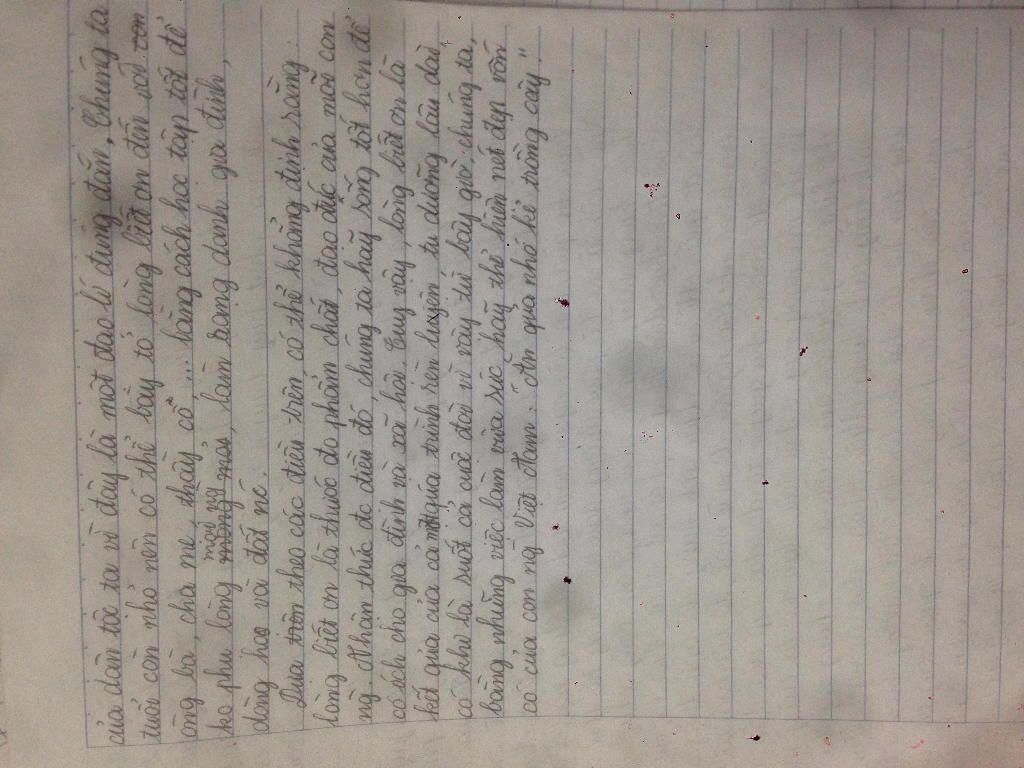 của dân tộc ta vì đây là một đạo lí đúng đắn. Chúng ta
tuổi còn nhỏ nên có thể bày tỏ lòng biết ơn đến với
ông bà, cha mẹ, thầy cô,... bằng cách học tập tốt để
ko phụ lòng mọi ng, làm rạng danh gia đình,
dòng họ và đất nc.
Dựa theo các điều trên, có thể khẳng định rằng:
lòng biết ơn là thước đo phẩm chất, đạo đức của mỗi con
ng. Nhận thức đc điều đó, chúng ta hãy sống tốt hơn để
có ích cho gia đình và xã hội. Tuy vậy, lòng biết ơn là
kết quả của cả một quá trình rèn luyện, tu dưỡng lâu dài
có khi là suốt cả cuộc đời vì vậy từ bây giờ, chúng ta,
bằng những việc làm vừa sức hãy thể hiện nét đẹp vốn
có của con ng Việt Nam: "Ăn quả nhớ kẻ trồng cây".